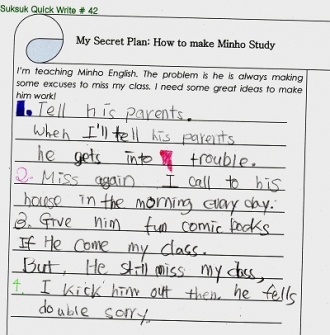 Suksuk Quick Write # 42
My Secret Plan: How to make Minho Study
I'm teaching Minho English. The problem is he is always making
some excuses to miss my class. I need some great ideas to make
him work!
1. Tell his parents.
When I'll tell his parents
he gets into trouble.
2. Miss again I call to his
house in the morning every day.
3. Give him fun comic books
If He come my class.
But, He still miss my class,
4. I kick him out then he fells
double sorry.